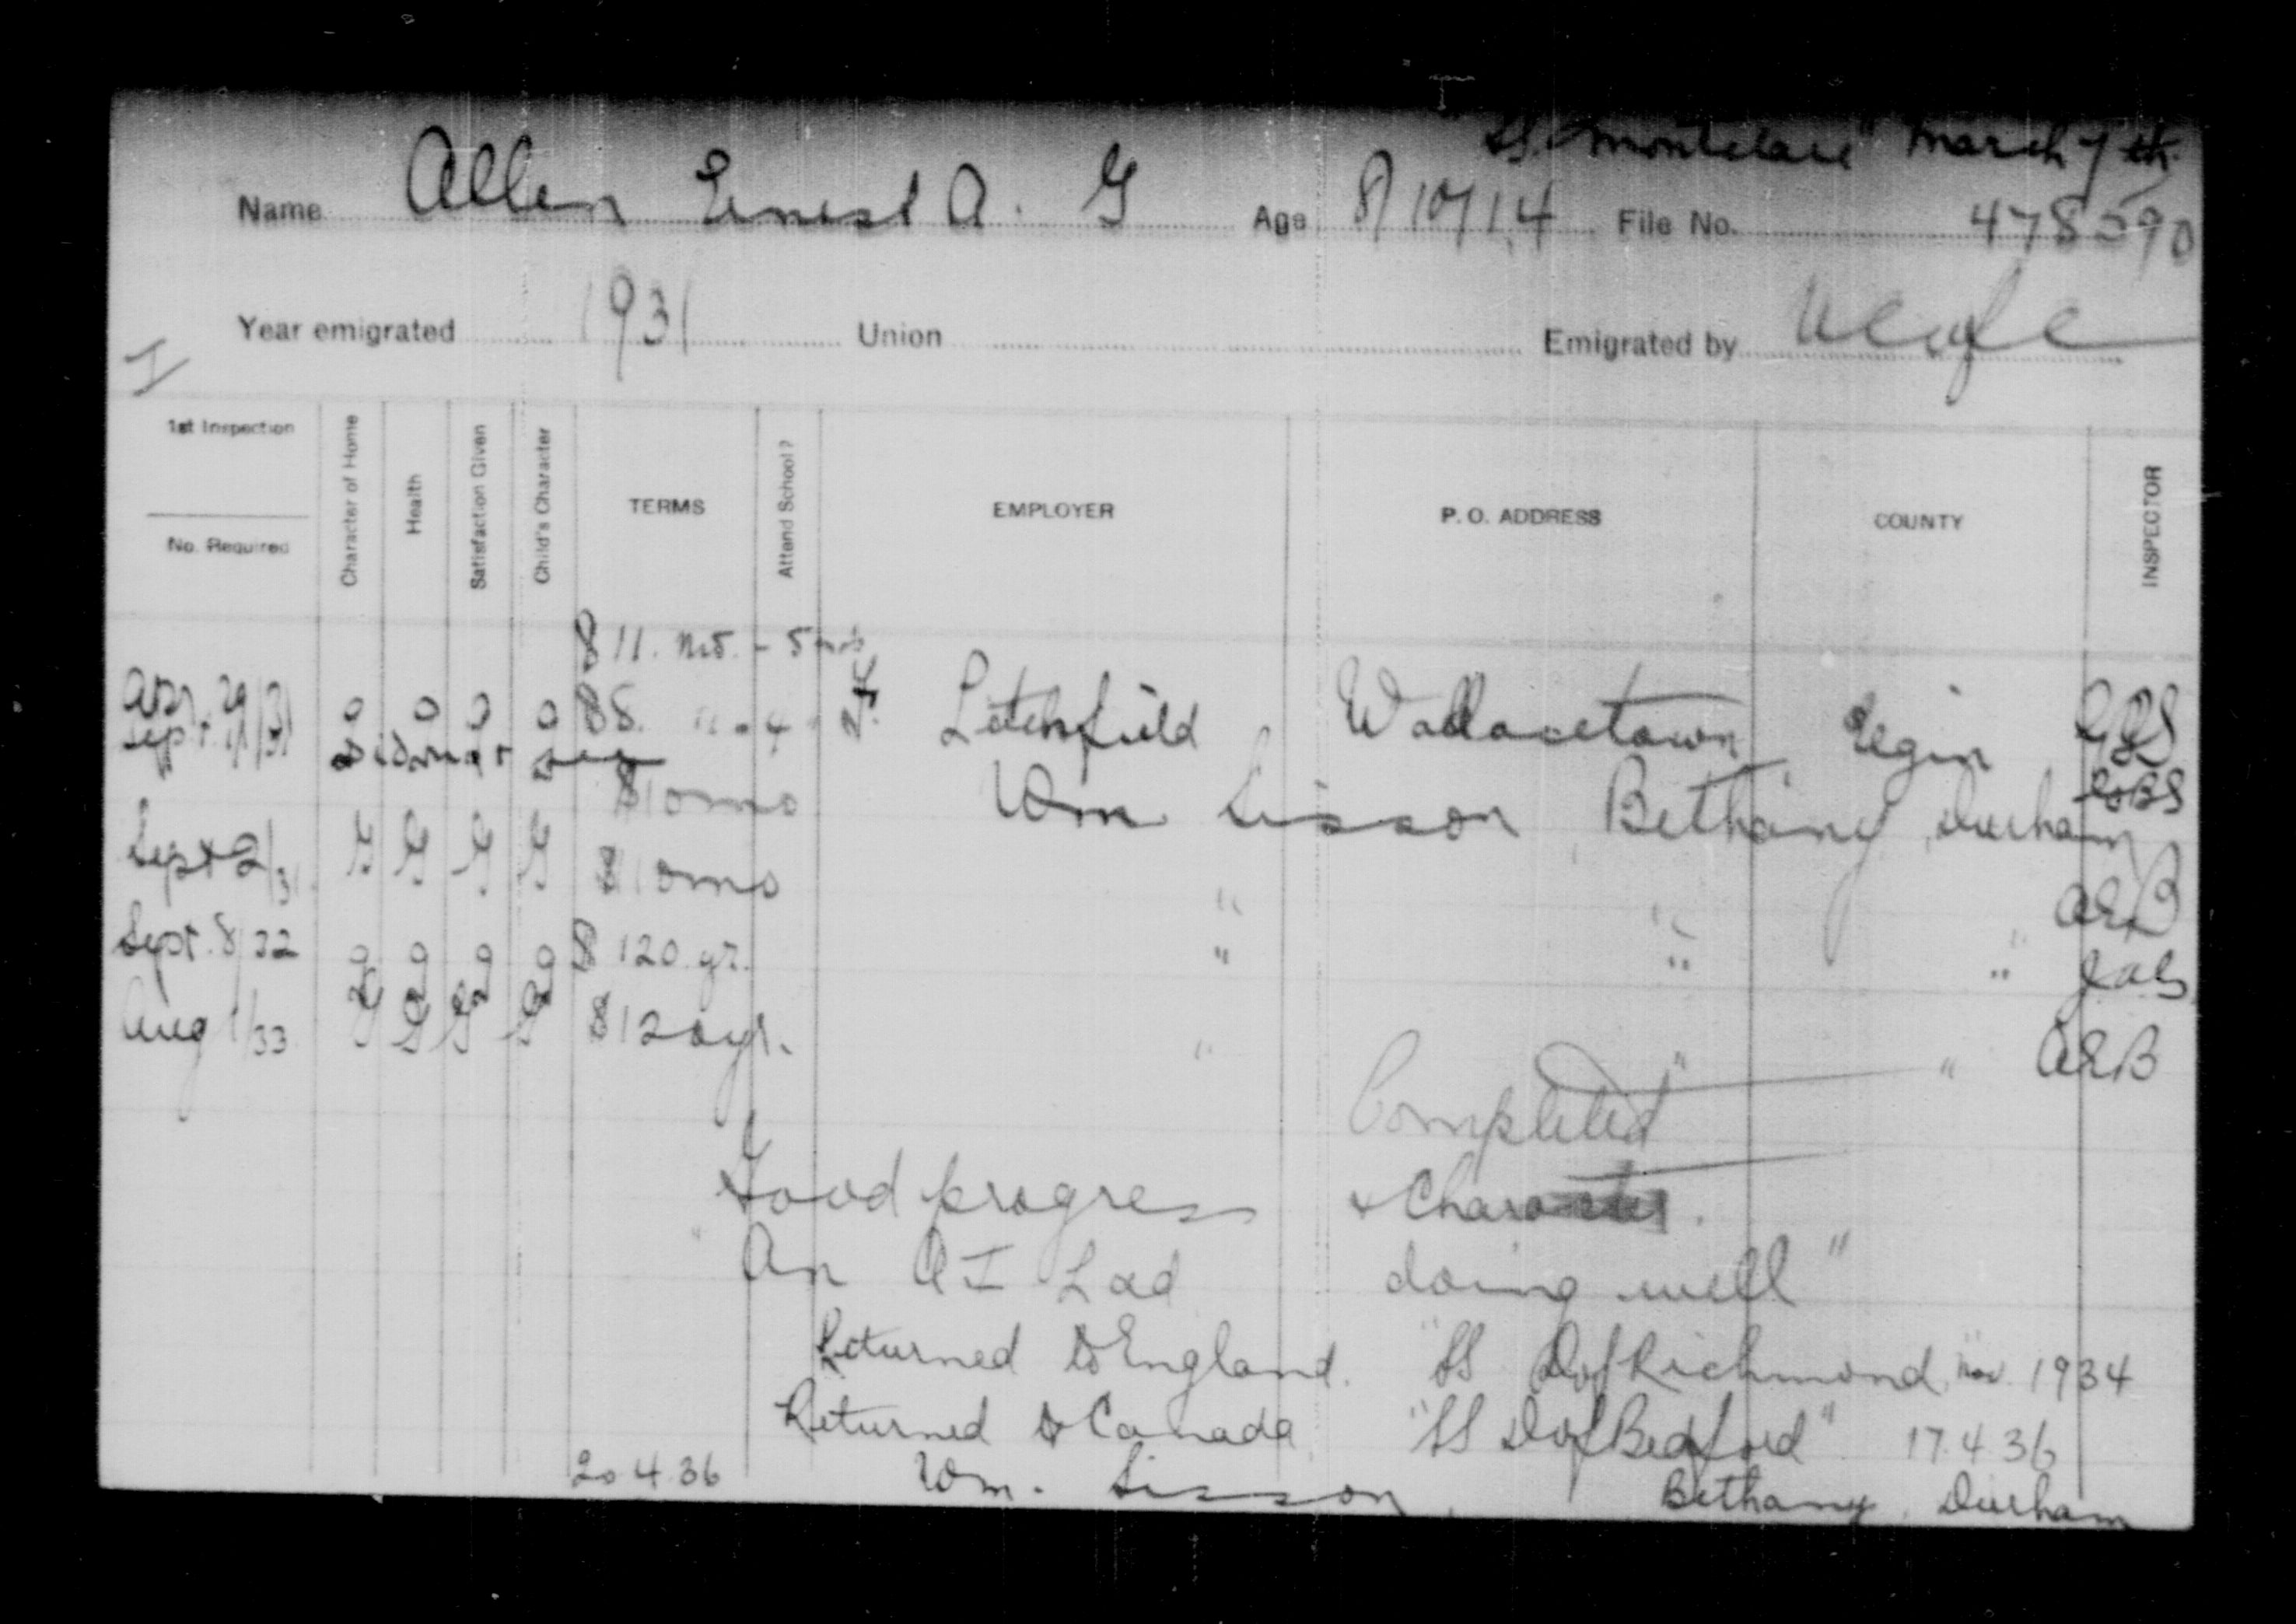 "SS. Montclare" March 7th
Name Allen Ernest A. G Age 8/10/14 File No. 478590
Year emigrated 1931 Union Emigrated by
I
1st Inspection
No. Required
Character of Home
Health
Satisfaction Given
Child's Character
TERMS
Attend School?
EMPLOYER
P. O. ADDRESS
COUNTY
INSPECTOR
$11. mo. - 5 mos
Apr. 29/31 g g g g $8. " - 4 " Letchfield Wallacetown Elgin GBS
Sept. 1/31 Did not see GBS
$10 mo Wm Sisson Bethany Durham
Sept 2/31 G G G G $10 mo " " AEB
Sept. 8/32 g g g g $120 yr. " " " JAB
Aug 1/33 G G G G $120 yr. " " " AEB
Completed
Good progress & Character.
"An A I Lad doing well"
Returned to England. "SS D of Richmond" Nov. 1934
Returned to Canada "SS D of Bedford" 17.4.36
20 4 36 Wm. Sisson, Bethany, Durham